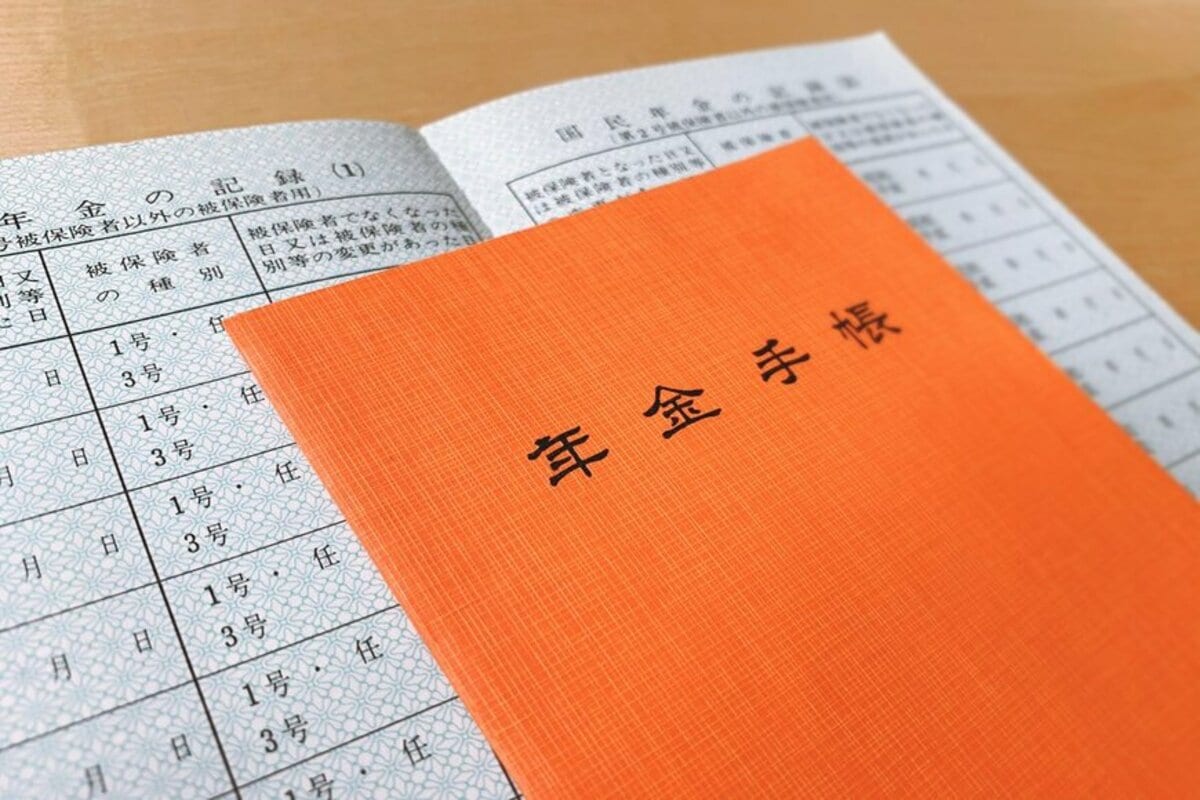 年金手帳
年金の記録(1)
号被保険者以外の被保険者用)
日又
別等
た日
被保険者
の種別
被保険者でなくなった
日又は被保険者の種
別等の変更があった日
日
1号・任
3号
月 日
1号・任
3号
月 日
1号・任
3号
月 日
1号・任
3号
月 日
1号・任
3号
1号・任
国民年金の記録
(第2号被保険者以外の被保険者用
被保険者となった日又
は被保険者の種別等
被保険者